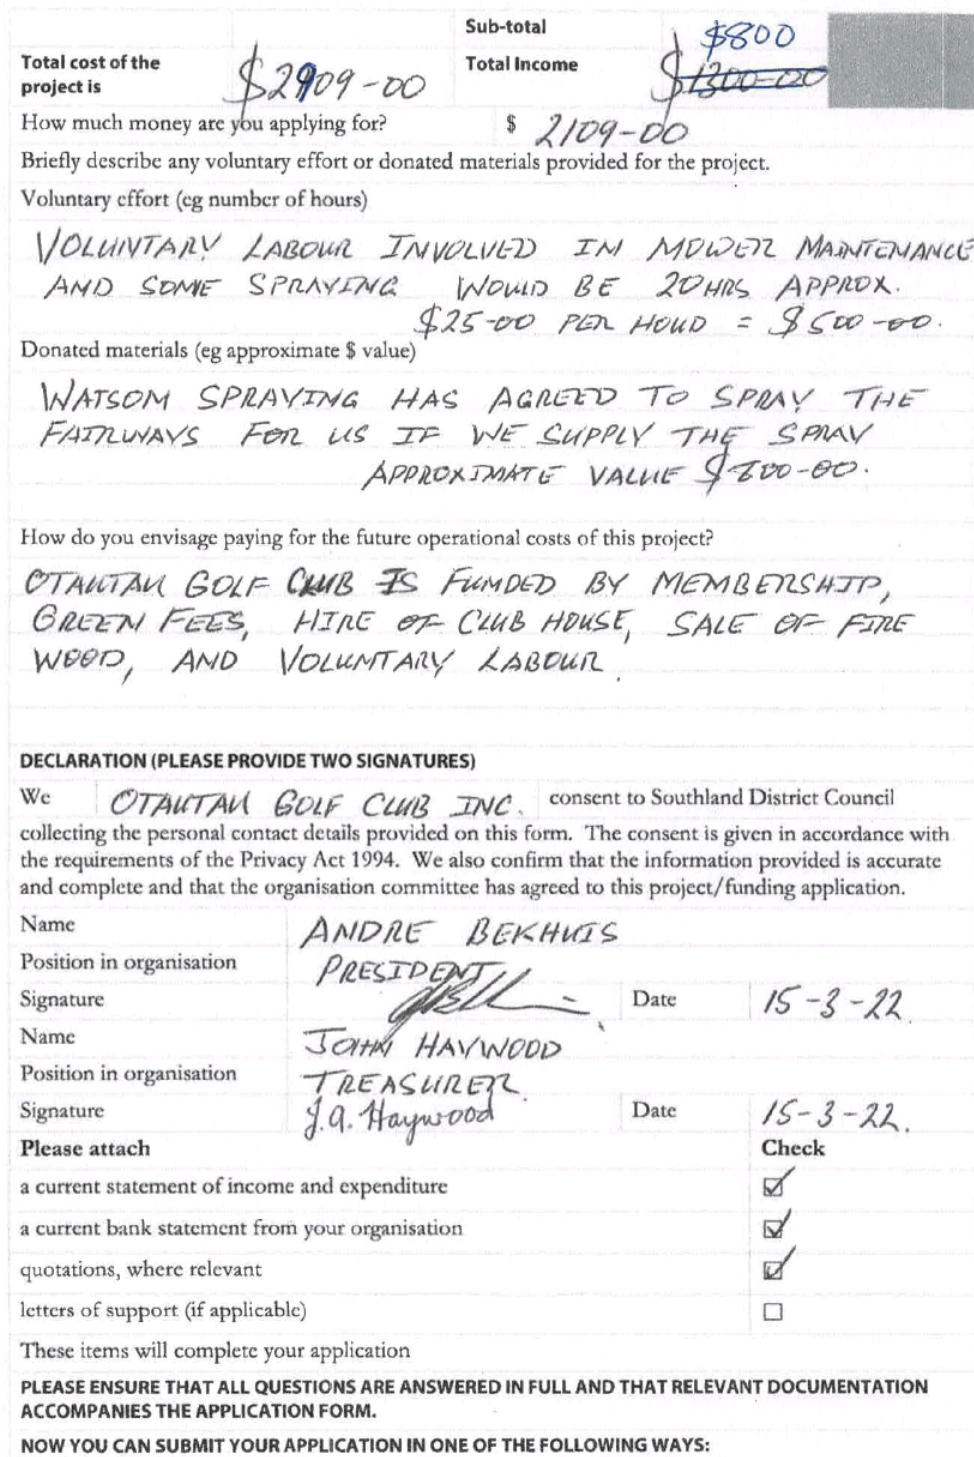 Sub-total
$800
Total cost of the project is $2909-00 Total Income $1300-00
How much money are you applying for? $ 2109-00
Briefly describe any voluntary effort or donated materials provided for the project.
Voluntary effort (eg number of hours)
VOLUNTARY LABOUR INVOLVED IN MOWER MAINTENANCE
AND SOME SPRAYING WOULD BE 20HRS APPROX.
$25-00 PER HOUD = $500-00.
Donated materials (eg approximate $ value)
WATSOM SPRAYING HAS AGREED TO SPRAY THE
FAIRWAYS FOR US IF WE SUPPLY THE SPRAY
APPROXIMATE VALUE $800-00.
How do you envisage paying for the future operational costs of this project?
OTAUTAU GOLF CLUB IS FUNDED BY MEMBERSHIP,
GREEN FEES, HIRE OF CLUB HOUSE, SALE OF FIRE
WOOD, AND VOLUNTARY LABOUR.
DECLARATION (PLEASE PROVIDE TWO SIGNATURES)
We OTAUTAU GOLF CLUB INC. consent to Southland District Council
collecting the personal contact details provided on this form. The consent is given in accordance with
the requirements of the Privacy Act 1994. We also confirm that the information provided is accurate
and complete and that the organisation committee has agreed to this project/funding application.
Name ANDRE BEKHUIS
Position in organisation PRESIDENT
Signature Date 15-3-22.
Name JOHN HAYWOOD
Position in organisation TREASURER.
Signature J.A. Haywood Date 15-3-22.
Please attach Check
a current statement of income and expenditure
a current bank statement from your organisation
quotations, where relevant
letters of support (if applicable)
These items will complete your application
PLEASE ENSURE THAT ALL QUESTIONS ARE ANSWERED IN FULL AND THAT RELEVANT DOCUMENTATION
ACCOMPANIES THE APPLICATION FORM.
NOW YOU CAN SUBMIT YOUR APPLICATION IN ONE OF THE FOLLOWING WAYS: